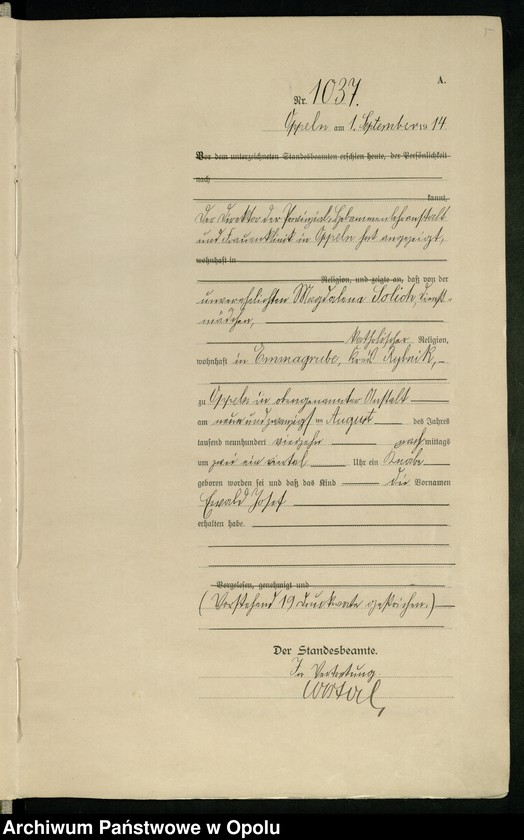 A.
Nr. 1037.
Oppeln am 1. September 19 14.
Vor dem unterzeichneten Standesbeamten erschien heute, der Persönlichkeit
nach
kannt,
Der Direktor der Provinzial-Hebammenlehranstalt
und Frauenklinik in Oppeln hat angezeigt,
wohnhaft in
Religion, und zeigte an, daß von der
unverehelichten Magdalena Solich, Dienst-
mädchen,
katholischer Religion,
wohnhaft in Emmagrube, Kreis Rybnik,
zu Oppeln in obengenannter Anstalt
am neunundzwanzigsten August des Jahres
tausend neunhundert vierzehn nachmittags
um zwei ein viertel Uhr ein Knabe
geboren worden sei und daß das Kind die Vornamen
Ewald Josef
erhalten habe.
Vorgelesen, genehmigt und
(Vorstehend 19 Druckworte gestrichen.)
Der Standesbeamte.
In Vertretung.
Archiwum Państwowe w Opolu